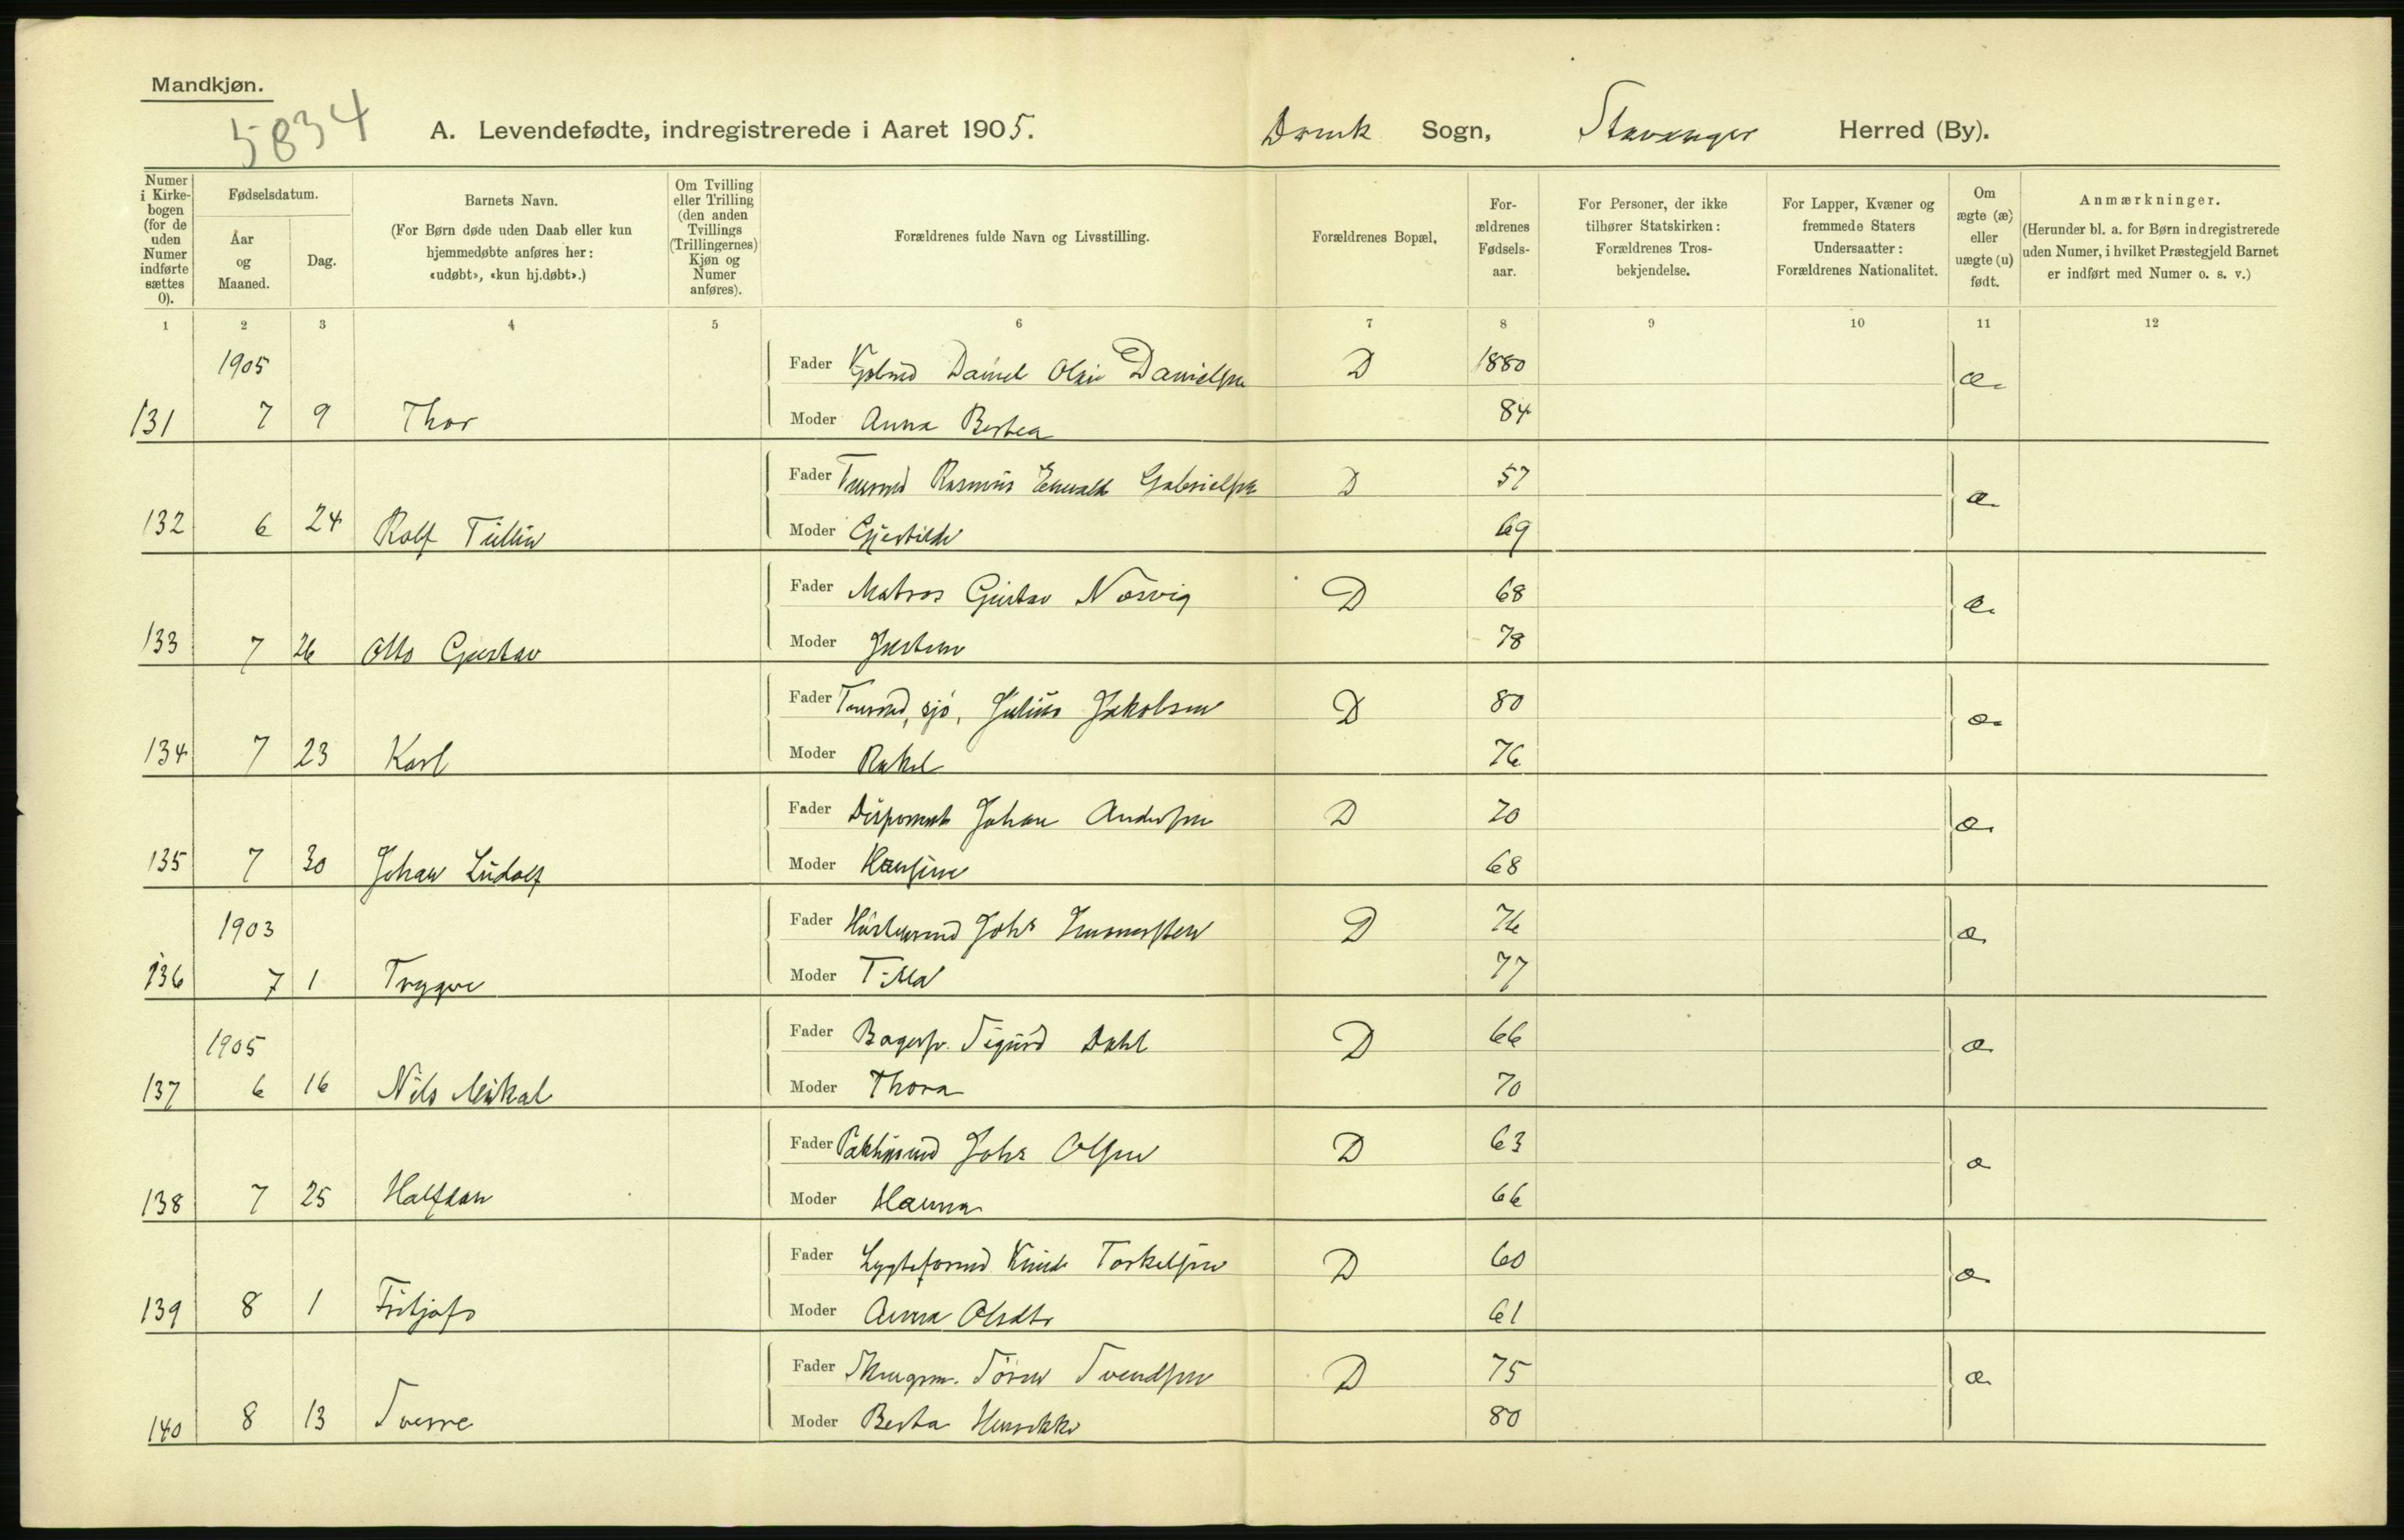 Mandkjøn.
5834
A. Levendefødte, indregistrerede i Aaret 1905. Domk Sogn, Stavanger Herred (By).
Numer i Kirkebogen (for de uden Numer indførte sættes 0).
Fødselsdatum.
Aar og Maaned.
Dag.
Barnets Navn.
(For Børn døde uden Daab eller kun hjemmedøbte anføres her: «udøbt», «kun hj.døbt».)
Om Tvilling eller Trilling (den anden Tvillings (Trillingernes) Kjøn og Numer anføres).
Forældrenes fulde Navn og Livsstilling.
Forældrenes Bopæl.
Forældrenes Fødselsaar.
For Personer, der ikke tilhører Statskirken: Forældrenes Trosbekjendelse.
For Lapper, Kvæner og fremmede Staters Undersaatter: Forældrenes Nationalitet.
Om ægte (æ) eller uægte (u) født.
Anmærkninger.
(Herunder bl. a. for Børn indregistrerede uden Numer, i hvilket Præstegjeld Barnet er indført med Numer o. s. v.)
1 2 3 4 5 6 7 8 9 10 11 12
1905 Fader Daniel Olai Danielsen D 1880 æ.
131 7 9 Thor Moder Anna Bertea 84
Fader Rasmus Gabrielsen D 57 æ.
132 6 24 Rolf Tullin Moder 69
Fader Matros Gustav Norvig D 68 æ.
133 7 26 Otto Gustav Moder 78
Fader sjø, Julius Jakobsen D 80 æ.
134 7 23 Karl Moder Rakel 76
Fader Disponent Johan Andersen D 70 æ.
135 7 30 Johan Ludolf Moder Hansine 68
1903 Fader Johs D 76 æ.
136 7 1 Trygve Moder Tilla 77
1905 Fader Bagersv. Sigurd Dahl D 66 æ.
137 6 16 Nils Mikal Moder Thora 70
Fader Johs Olsen D 63 æ
138 7 25 Halfdan Moder Hanna 66
Fader Knud Torkelsen D 60 æ.
139 8 1 Fritjof Moder Anna Olsdtr 61
Fader Søren Svendsen D 75 æ.
140 8 13 Sverre Moder Berta Henrikke 80